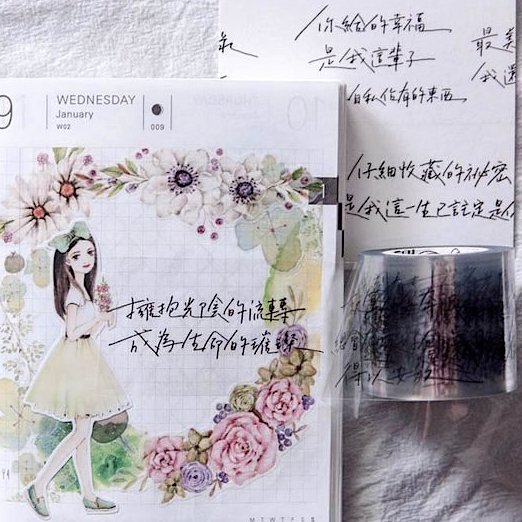 你給的幸福
是我這輩子
自私佔有的東西
最美
我還
仔細收藏的祕密
是我這一生已註定是
9
WEDNESDAY
January
W02
009
THURSDAY
10
擁抱光陰的流轉
成為生命的璀璨
得以安放
M T W T F S S